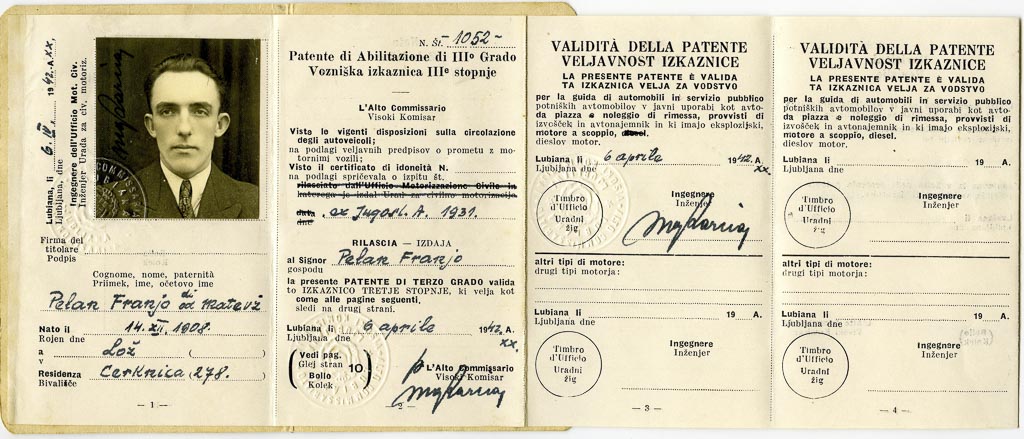 Lubiana, li 6. IV. 1942. A. XX,
Ljubljana, dne
Ingegnere dell'Ufficio Mot. Civ.
Inženjer Urada za civ. motoriz.
Firma del
titolare
Podpis
Cognome, nome, paternità
Priimek, ime, očetovo ime
Pelan Franjo di od Matevž
Nato il 14. XII. 1908.
Rojen dne
a Lož ( )
v
Residenza Cerknica 278.
Bivališče
— 1 —
N. Št. -1052-
Patente di Abilitazione di IIIº Grado
Vozniška izkaznica IIIe stopnje
L'Alto Commissario
Visoki Komisar
Visto le vigenti disposizioni sulla circolazione
degli autoveicoli;
na podlagi veljavnih predpisov o prometu z mo-
tornimi vozili;
Visto il certificato di idoneità N.
na podlagi spričevala o izpitu št.
rilasciato dall'Ufficio Motorizzazione Civile in
katerega je izdal Urad za civilno motorizacijo
data ex Jugosl. A. 1931.
dne
RILASCIA — IZDAJA
al Signor Pelan Franjo
gospodu
la presente PATENTE DI TERZO GRADO valida
TO IZKAZNICO TRETJE STOPNJE, ki velja kot
come alle pagine seguenti,
sledi na drugi strani.
Lubiana li 6 aprile 1942. A.
Ljubljana dne XX.
Vedi pag.
Glej stran 10
Bollo
Kolek
p. L'Alto Commissario
Visoki Komisar
— 2 —
VALIDITÀ DELLA PATENTE
VELJAVNOST IZKAZNICE
LA PRESENTE PATENTE È VALIDA
TA IZKAZNICA VELJA ZA VODSTVO
per la guida di automobili in servizio pubblico
potniških avtomobilov v javni uporabi kot avto-
da piazza e noleggio di rimessa, provvisti di
izvošček in avtonajemnik in ki imajo eksplozijski,
motore a scoppio, diesel.
dieslov motor.
Lubiana li 6 aprile 1942. A.
Ljubljana dne XX.
Timbro
d'Ufficio
Uradni
žig
Ingegnere
Inženjer
altri tipi di motore:
drugi tipi motorja:
Lubiana li 19 A.
Ljubljana dne
Timbro
d'Ufficio
Uradni
žig
Ingegnere
Inženjer
— 3 —
VALIDITÀ DELLA PATENTE
VELJAVNOST IZKAZNICE
LA PRESENTE PATENTE È VALIDA
TA IZKAZNICA VELJA ZA VODSTVO
per la guida di automobili in servizio pubblico
potniških avtomobilov v javni uporabi kot avto-
da piazza e noleggio di rimessa, provvisti di
izvošček in avtonajemnik in ki imajo eksplozijski,
motore a scoppio, diesel.
dieslov motor.
Lubiana li 19 A.
Ljubljana dne
Timbro
d'Ufficio
Uradni
žig
Ingegnere
Inženjer
altri tipi di motore:
drugi tipi motorja:
Lubiana li 19 A.
Ljubljana dne
Timbro
d'Ufficio
Uradni
žig
Ingegnere
Inženjer
— 4 —